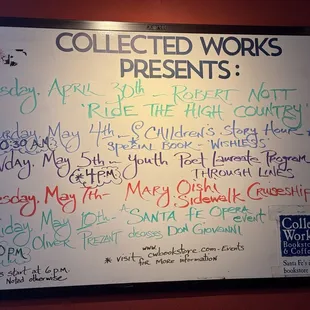 COLLECTED WORKS
PRESENTS:
sday. April 30th - ROBERT NOTT
"RIDE THE HIGH COUNTRY"
urday. May 4th - CHILDREN'S Story Hour
10:30 AM SPECIAL BOOK - "WISHLESS"
nday. May 5th - Youth Poet Laureate Program
@ 4PM THROUGH LINES
esday. May 7th - MARY Oishi
SIDEWALK CRUISESHIP
iday. May 10th - A SANTA FE OPERA event
OLIVER PREZANT discusses DON GIOVANNI
PM
* VISIT www.cwbookstore.com-Events
for more information
s start at 6pm
Noted otherwise
Colle
Work
Bookstore
& Coffe
Santa Fe's
bookstore